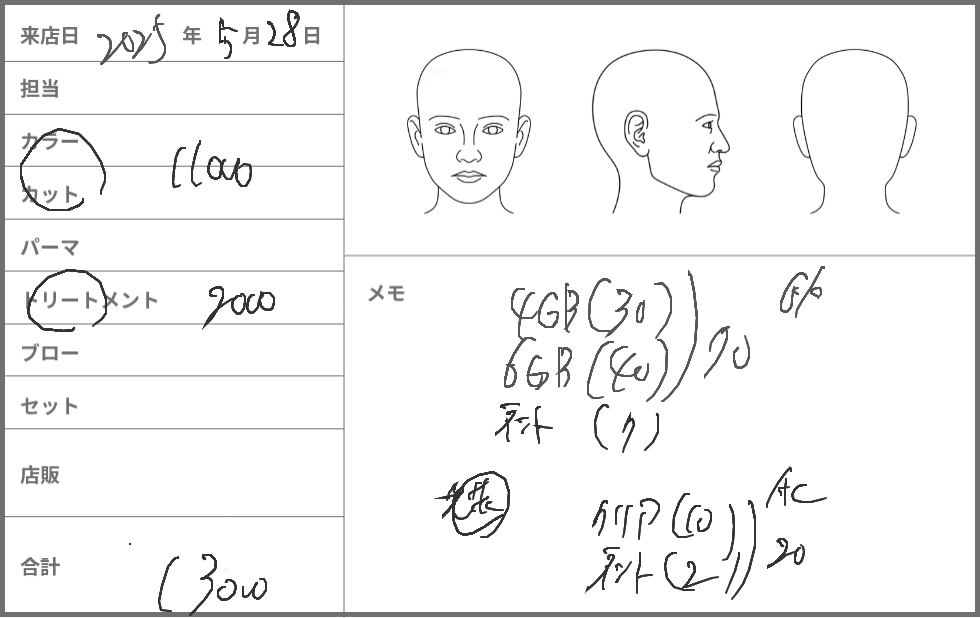 来店日 2025 年 5 月 28 日
担当
カラー
カット 11000
パーマ
トリートメント 2000
ブロー
セット
店販
合計 13000
メモ
4GB (30)
6GB (40) 70
(7)
クリア (10)
(2) 20